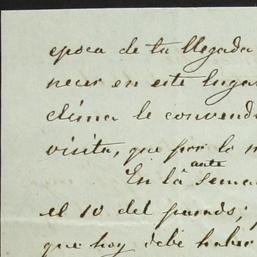 epoca de tu llegada
necer en este luga
clima le convend
visita, que por lo
ante
En la semα
el 10 del pasado;
que hoy debe haber